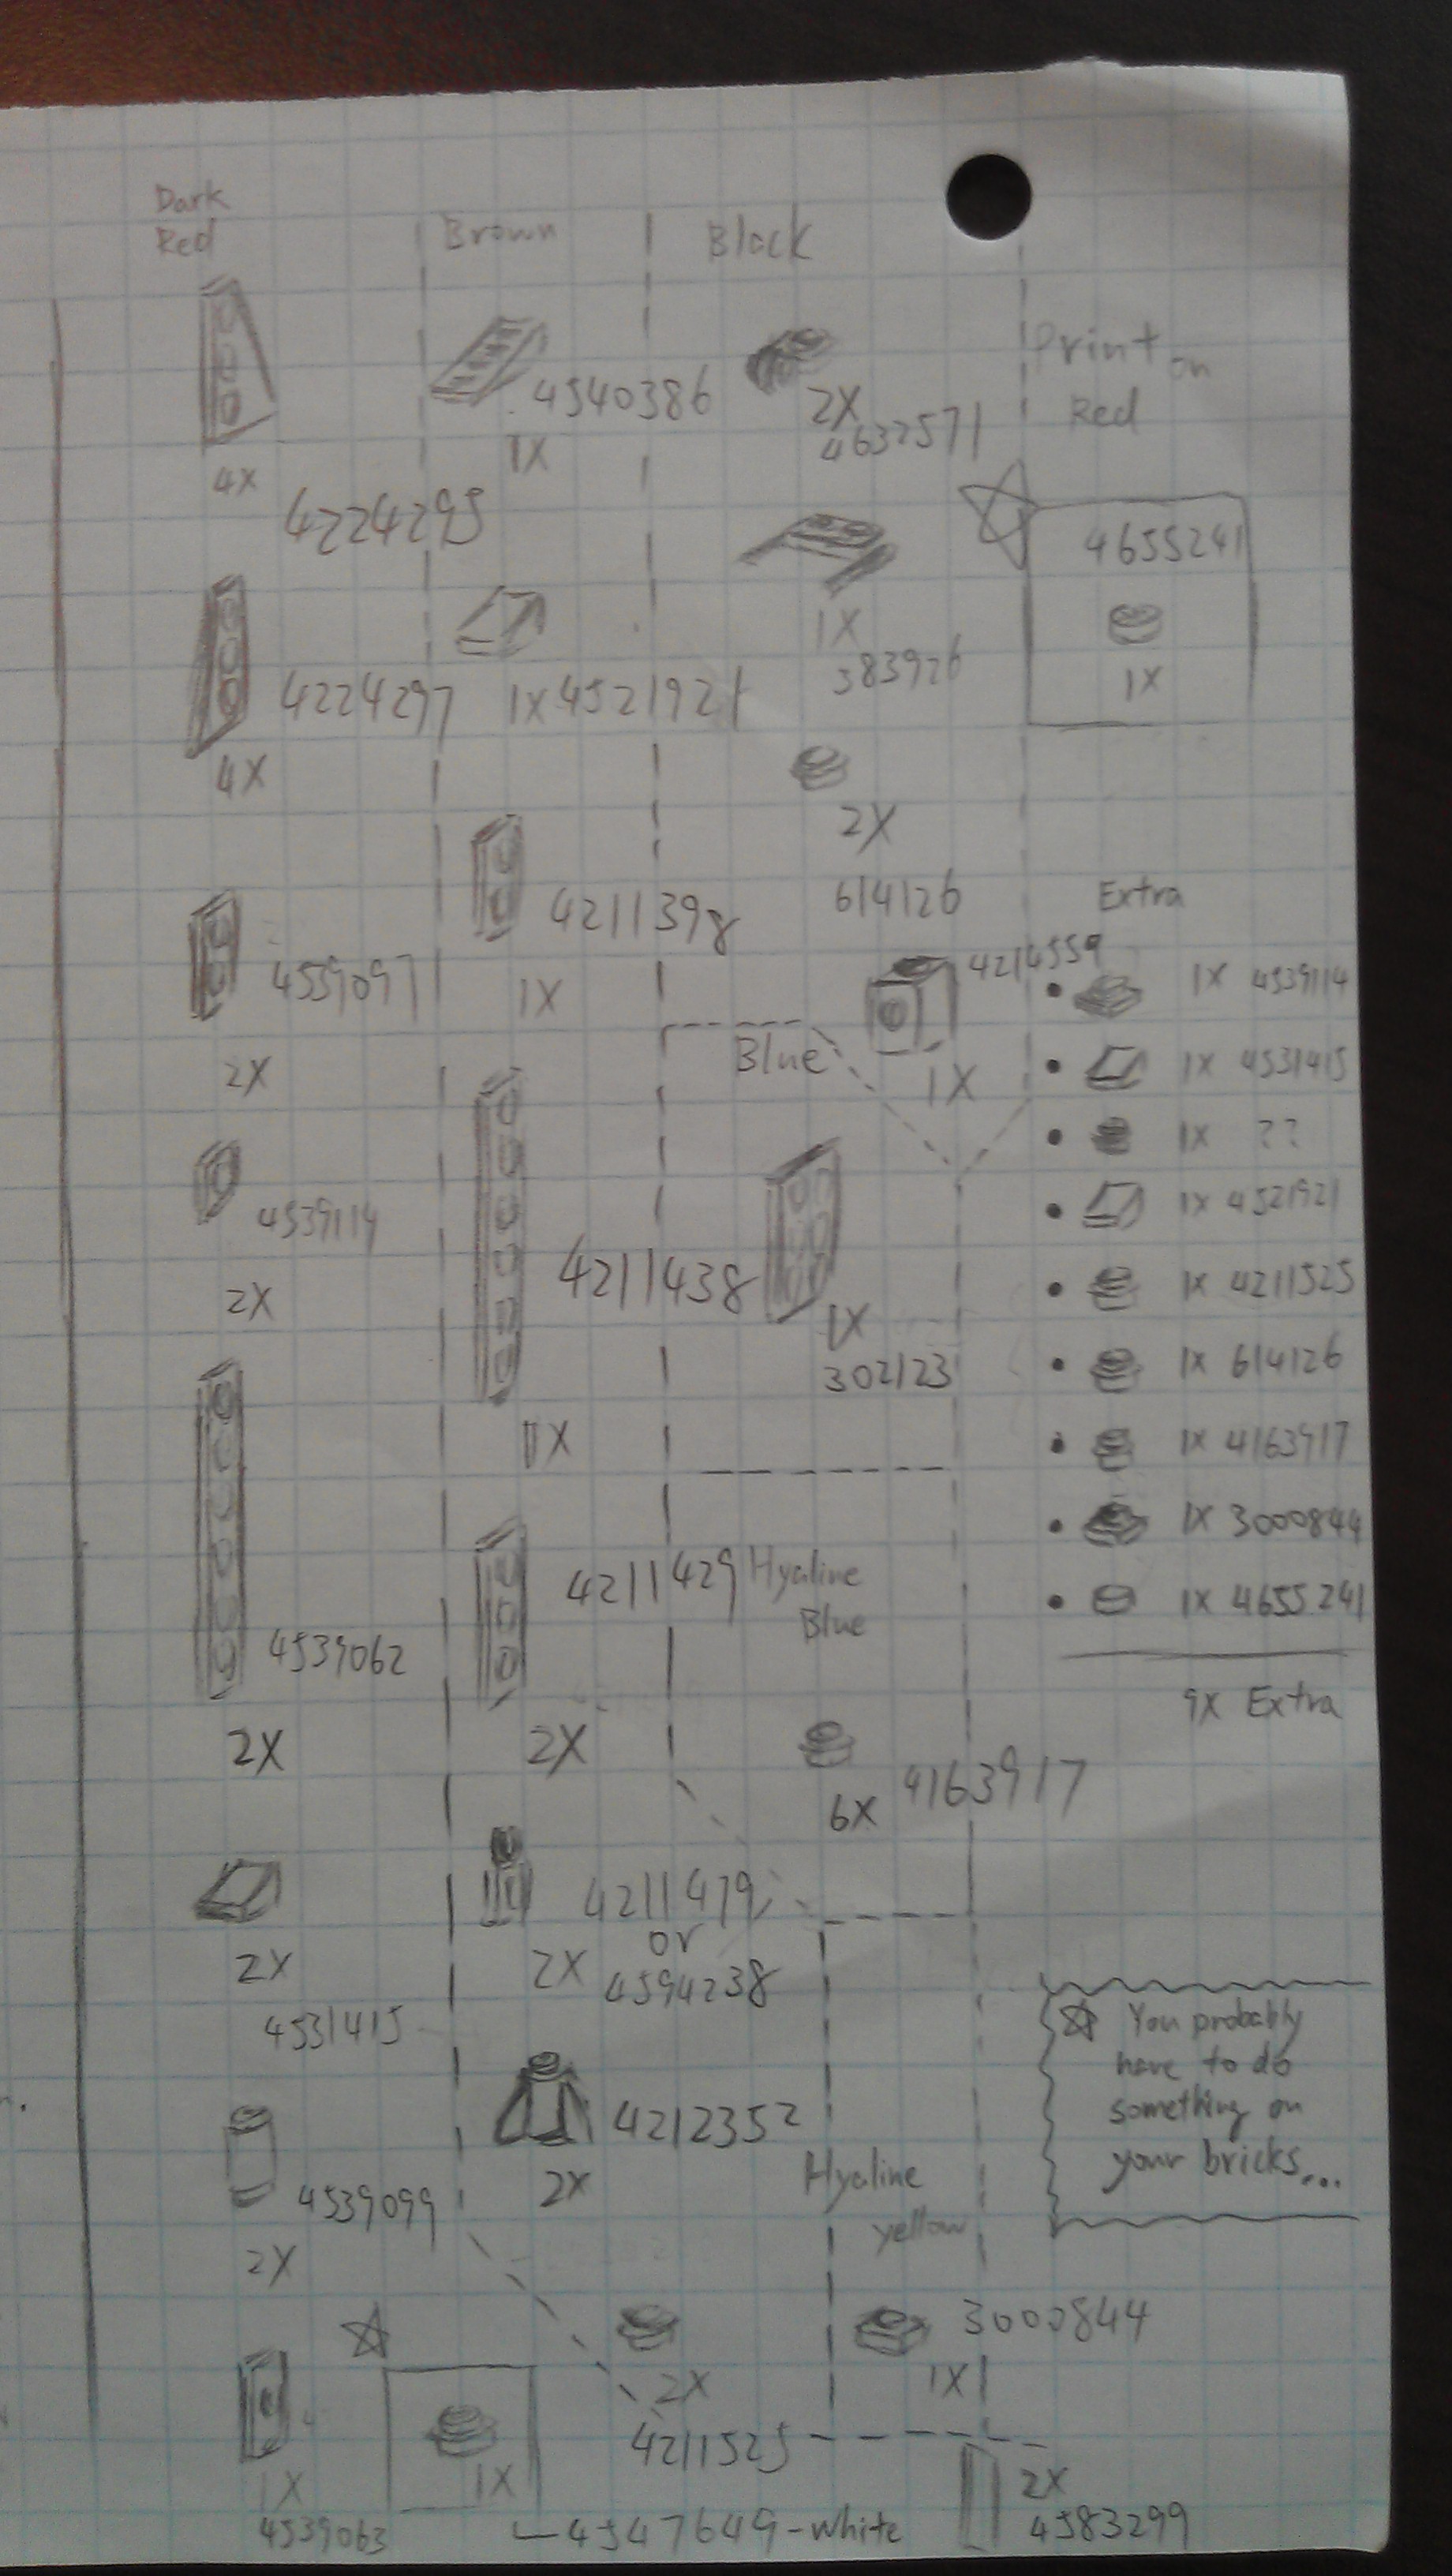 Dark
Red
4X
4224295
4224297
4X
4539097
2X
4539114
2X
4539062
2X
2X
4531415
4539099
2X
1X
4539063
1X
4547649-white
Brown
4540386
1X
1X 4521921
4211398
1X
4211438
1X
4211429
2X
4211479
or
2X 4594238
4212352
2X
2X
4211525
Black
2X
4632571
1X
383926
2X
614126
4214559
1X
Blue
1X
302123
Hyaline
Blue
4163917
6X
Hyaline
yellow
3000844
1X
2X
4583299
Print on
Red
4655241
1X
Extra
• 1X 4539114
• 1X 4531415
• 1X ??
• 1X 4521921
• 1X 4211525
• 1X 614126
• 1X 4163917
• 1X 3000844
• 1X 4655241
9X Extra
☆ You probably
have to do
something on
your bricks...